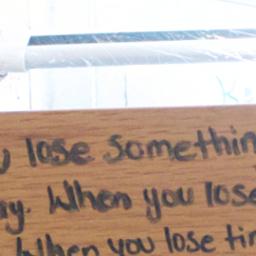 lose somethin
ay. When you lose
When you lose tim